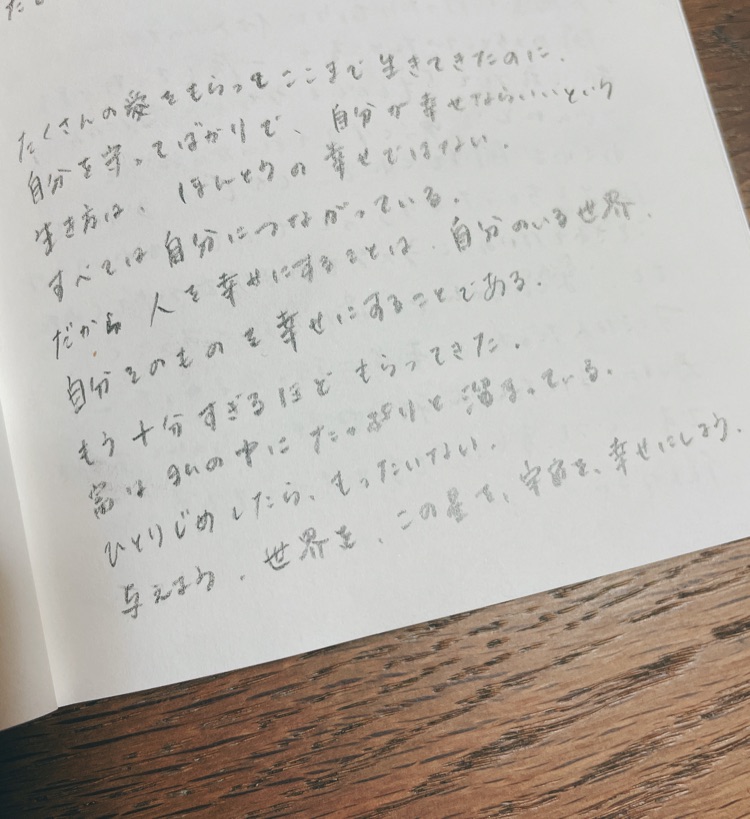 たくさんの愛をもらってここまで生きてきたのに、
自分を守ってばかりで、自分が幸せならいいという
生き方は、ほんとうの幸せではない。
すべては自分につながっている。
だから人を幸せにすることは、自分のいる世界、
自分そのものを幸せにすることである。
もう十分すぎるほどもらってきた。
富は私の中にたっぷりと溜まっている。
ひとりじめしたら、もったいない。
与えよう。世界を、この星を、宇宙を、幸せにしよう。